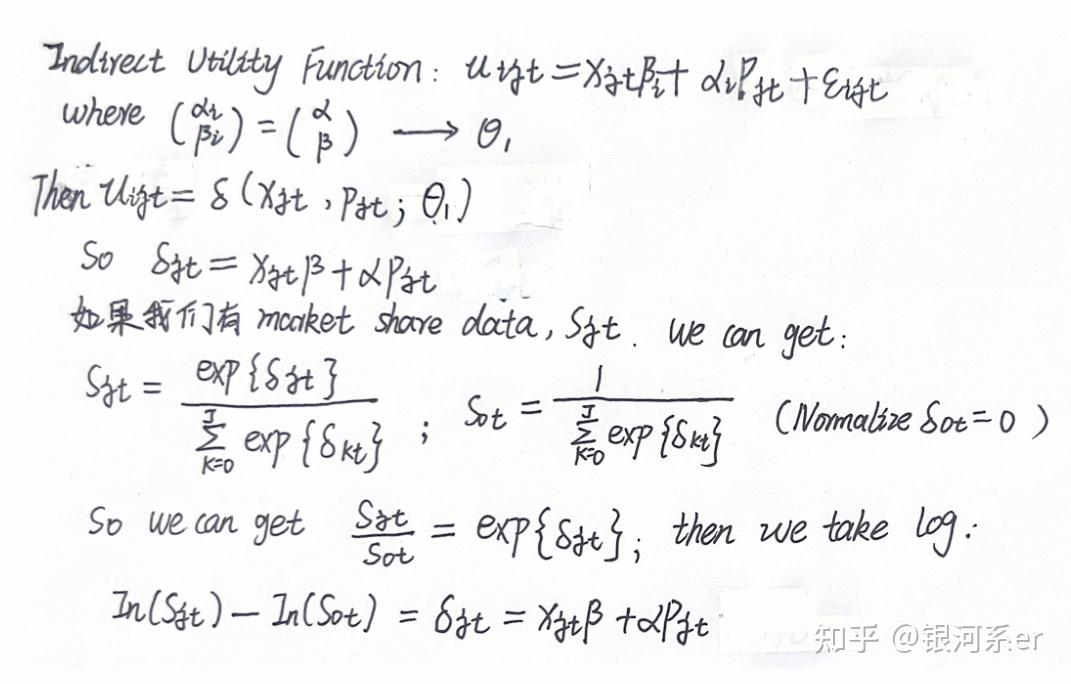 Indirect Utility Function: u_ijt = x_jt β_i + α_i P_jt + ε_ijt
where (α_i β_i) = (α β) → θ_1
Then u_ijt = δ(x_jt, p_jt; θ_1)
So δ_jt = x_jt β + α p_jt
如果我们有 market share data, S_jt. we can get:
S_jt = exp{δ_jt} / ∑_{K=0}^{J} exp{δ_kt} ; S_0t = 1 / ∑_{K=0}^{J} exp{δ_kt} (Normalize δ_0t = 0)
So we can get S_jt / S_0t = exp{δ_jt}; then we take log:
In(S_jt) − In(S_0t) = δ_jt = x_jt β + α p_jt
知乎 @银河系er